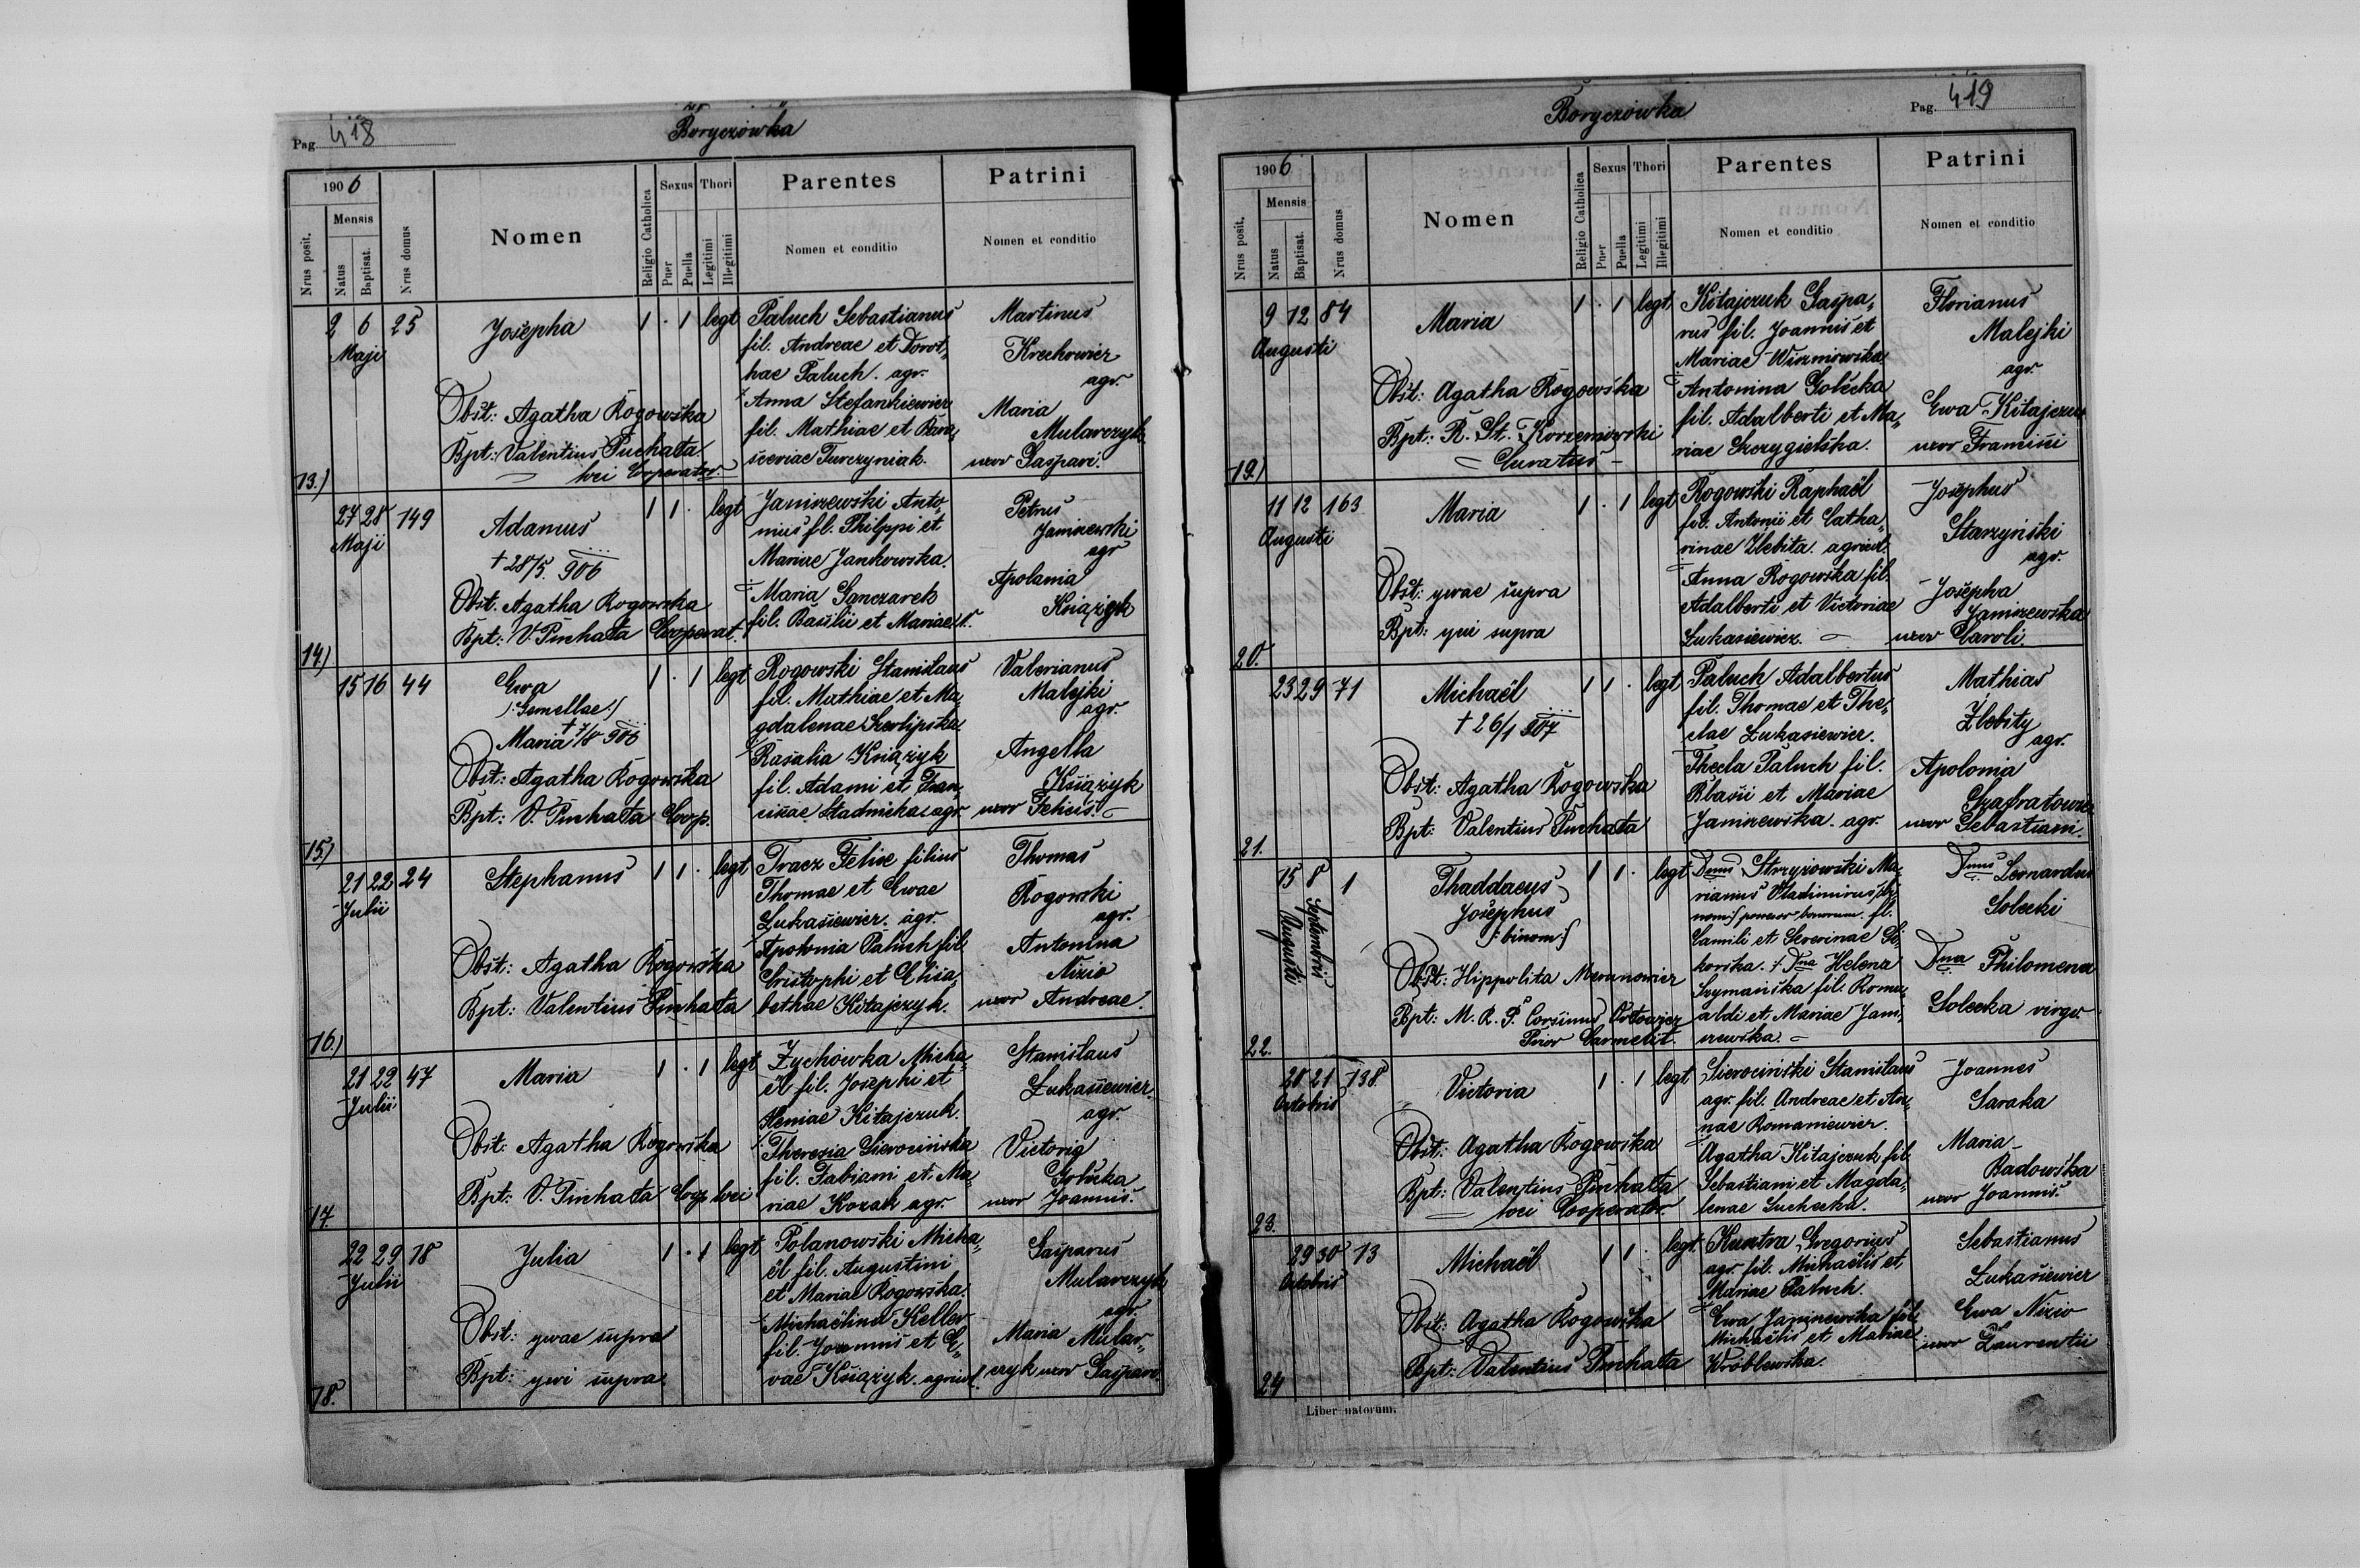 Pag. 418
Boryczówka
1906
Nrus posit.
Mensis
Natus
Baptisat.
Nrus domus
Nomen
Religio Catholica
Sexus
Puer
Puella
Thori
Legitimi
Illegitimi
Parentes
Nomen et conditio
Patrini
Nomen et conditio
13.)
2 6 25
Maji
Josepha
1 . 1 legt
Obst: Agatha Rogowska
Bpt: Valentius Puchała
loci Cooperator
Paluch Sebastianus
fil. Andreae et Doro,
hae Paluch. agr.
Anna Stefankiewicz
fil. Mathiae et
Turczyniak.
Martinus
Krechowicz
agr.
Maria
Mularczyk
uxor Gaspari.
14.)
27 28 149
Maji
Adamus
† 28/5. 906
1 1 . legt
Obst. Agatha Rogowska
Bpt: V. Puchała Cooperat.
Janiszewski Anto,
nius fil. Philppi et
Mariae Jankowska.
Maria Ganczarek
fil. Basilii et Mariae
Petrus
Janiszewski
agr
Apolonia
Książyk
15.)
15 16 44
Ewa
/:Gemellae:/
Maria † 7/8 906
1 . 1 legt
Obst: Agatha Rogowska
Bpt: V. Puchała Coop.
Rogowski Stanislaus
fil. Mathiae et Ma,
gdalenae
Rasalia Książyk
fil. Adami et Fran,
cisae Stadnicka agr.
Valerianus
Malejki
agr.
Angella
Książyk
uxor Felicis.
16.)
21 22 24
Julii
Stephanus
1 1 . legt
Obst: Agatha Rogowska
Bpt: Valentius Puchała
Tracz Felix filius
Thomae et Ewae
Łukasiewicz. agr.
Apolonia Paluch fil.
Cristophi et Elisa,
bethae Kitajczyk.
Thomas
Rogowski
agr.
Antonina
Nizio
uxor Andreae.
17.
21 22 47
Julii
Maria
1 . 1 legt
Obst: Agatha Rogowska
Bpt: V. Puchała Coop loci
Zychówka Micha,
ël fil. Josephi et
Xeniae Kitajczuk.
Theresia Sierocińska
fil. Fabiani et Ma,
riae Kozak agr.
Stanislaus
Łukasiewicz.
agr.
Victoria
Gołucka
uxor Joannis.
18.
22 29 78
Julii
Julia
1 . 1 legt
Obst: quae supra
Bpt: qui supra.
Polanowski Micha,
ël fil. Augustini
et Mariae Rogowska.
Michaëlina Keller
fil. Joannis et E,
vae Książyk. agricol.
Gasparus
Mularczyk
agr.
Maria Mular,
czyk uxor Gaspari.
Boryczówka
Pag. 419
1906
Nrus posit.
Mensis
Natus
Baptisat.
Nrus domus
Nomen
Religio Catholica
Sexus
Puer
Puella
Thori
Legitimi
Illegitimi
Parentes
Nomen et conditio
Patrini
Nomen et conditio
19.)
9 12 84
Augusti
Maria
1 . 1 legt
Obst: Agatha Rogowska
Bpt: R. St. Korzeniowski
Curatus
Kitajczuk Gaspa,
rus fil. Joannis et
Mariae Wiszniowska
Antonina Gołucka
fil. Adalberti et Ma,
riae Szczygielska.
Florianus
Malejki
agr.
Ewa Kitajczuk
uxor Francisci
20.
11 12 163
Augusti
Maria
1 . 1 legt
Obst: quae supra
Bpt: qui supra
Rogowski Raphaël
fil. Antonii et Catha,
rinae Żłebita. agricol.
Anna Rogowska fil.
Adalberti et Victoriae
Łukasiewicz.
Josephus
Starzyński
agr.
Josepha
Janiszewska
uxor Caroli.
21.
23 29 71
Michaël
† 26/1 907
1 1 . legt
Obst: Agatha Rogowska
Bpt: Valentius Puchała
Paluch Adalbertus
fil. Thomae et The,
clae Łukasiewicz.
Thecla Paluch fil.
Blasii et Mariae
Janiszewska. agr.
Mathias
Żłebity
agr.
Apolonia
uxor Sebastiani.
22.
15 8 1
Augusti
Septembris
Thaddaeus
Josephus
/:binom:/
1 1 . legt
Obst: Hippolita
Bpt: M. R. P. Corsinus
Prior Carmelit.
Dnus Strzyżowski Ma,
rianus Vladimirus /:bi
nom:/ possesor bonorum. fil.
Camili et Severinae
Dna Helena
Szymańska fil. Romu,
aldi et Mariae Jani,
szewska.
Dnus Leonardus
Solecki
Dna Philomena
Solecka virgo
23.
20 21 138
Octobris
Victoria
1 . 1 legt
Obst: Agatha Rogowska
Bpt: Valentius Puchała
loci Cooperator.
Sierociński Stanislaus
agr. fil. Andreae et An,
nae Romaniewicz.
Agatha Kitajczuk fil.
Sebastiani et Magda,
lenae Suchecka.
Joannes
Saraka
Maria
Badowska
uxor Joannis.
24
29 30 13
Octobris
Michaël
1 1 . legt
Obst: Agatha Rogowska
Bpt: Valentius Puchała
Gregorius
agr. fil. Michaëlis et
Mariae Paluch.
Ewa Janiszewska fil.
Michaëlis et Mariae
Wróblewska.
Sebastianus
Łukasiewicz
Ewa Nizio
uxor Laurentii
Liber natorum.